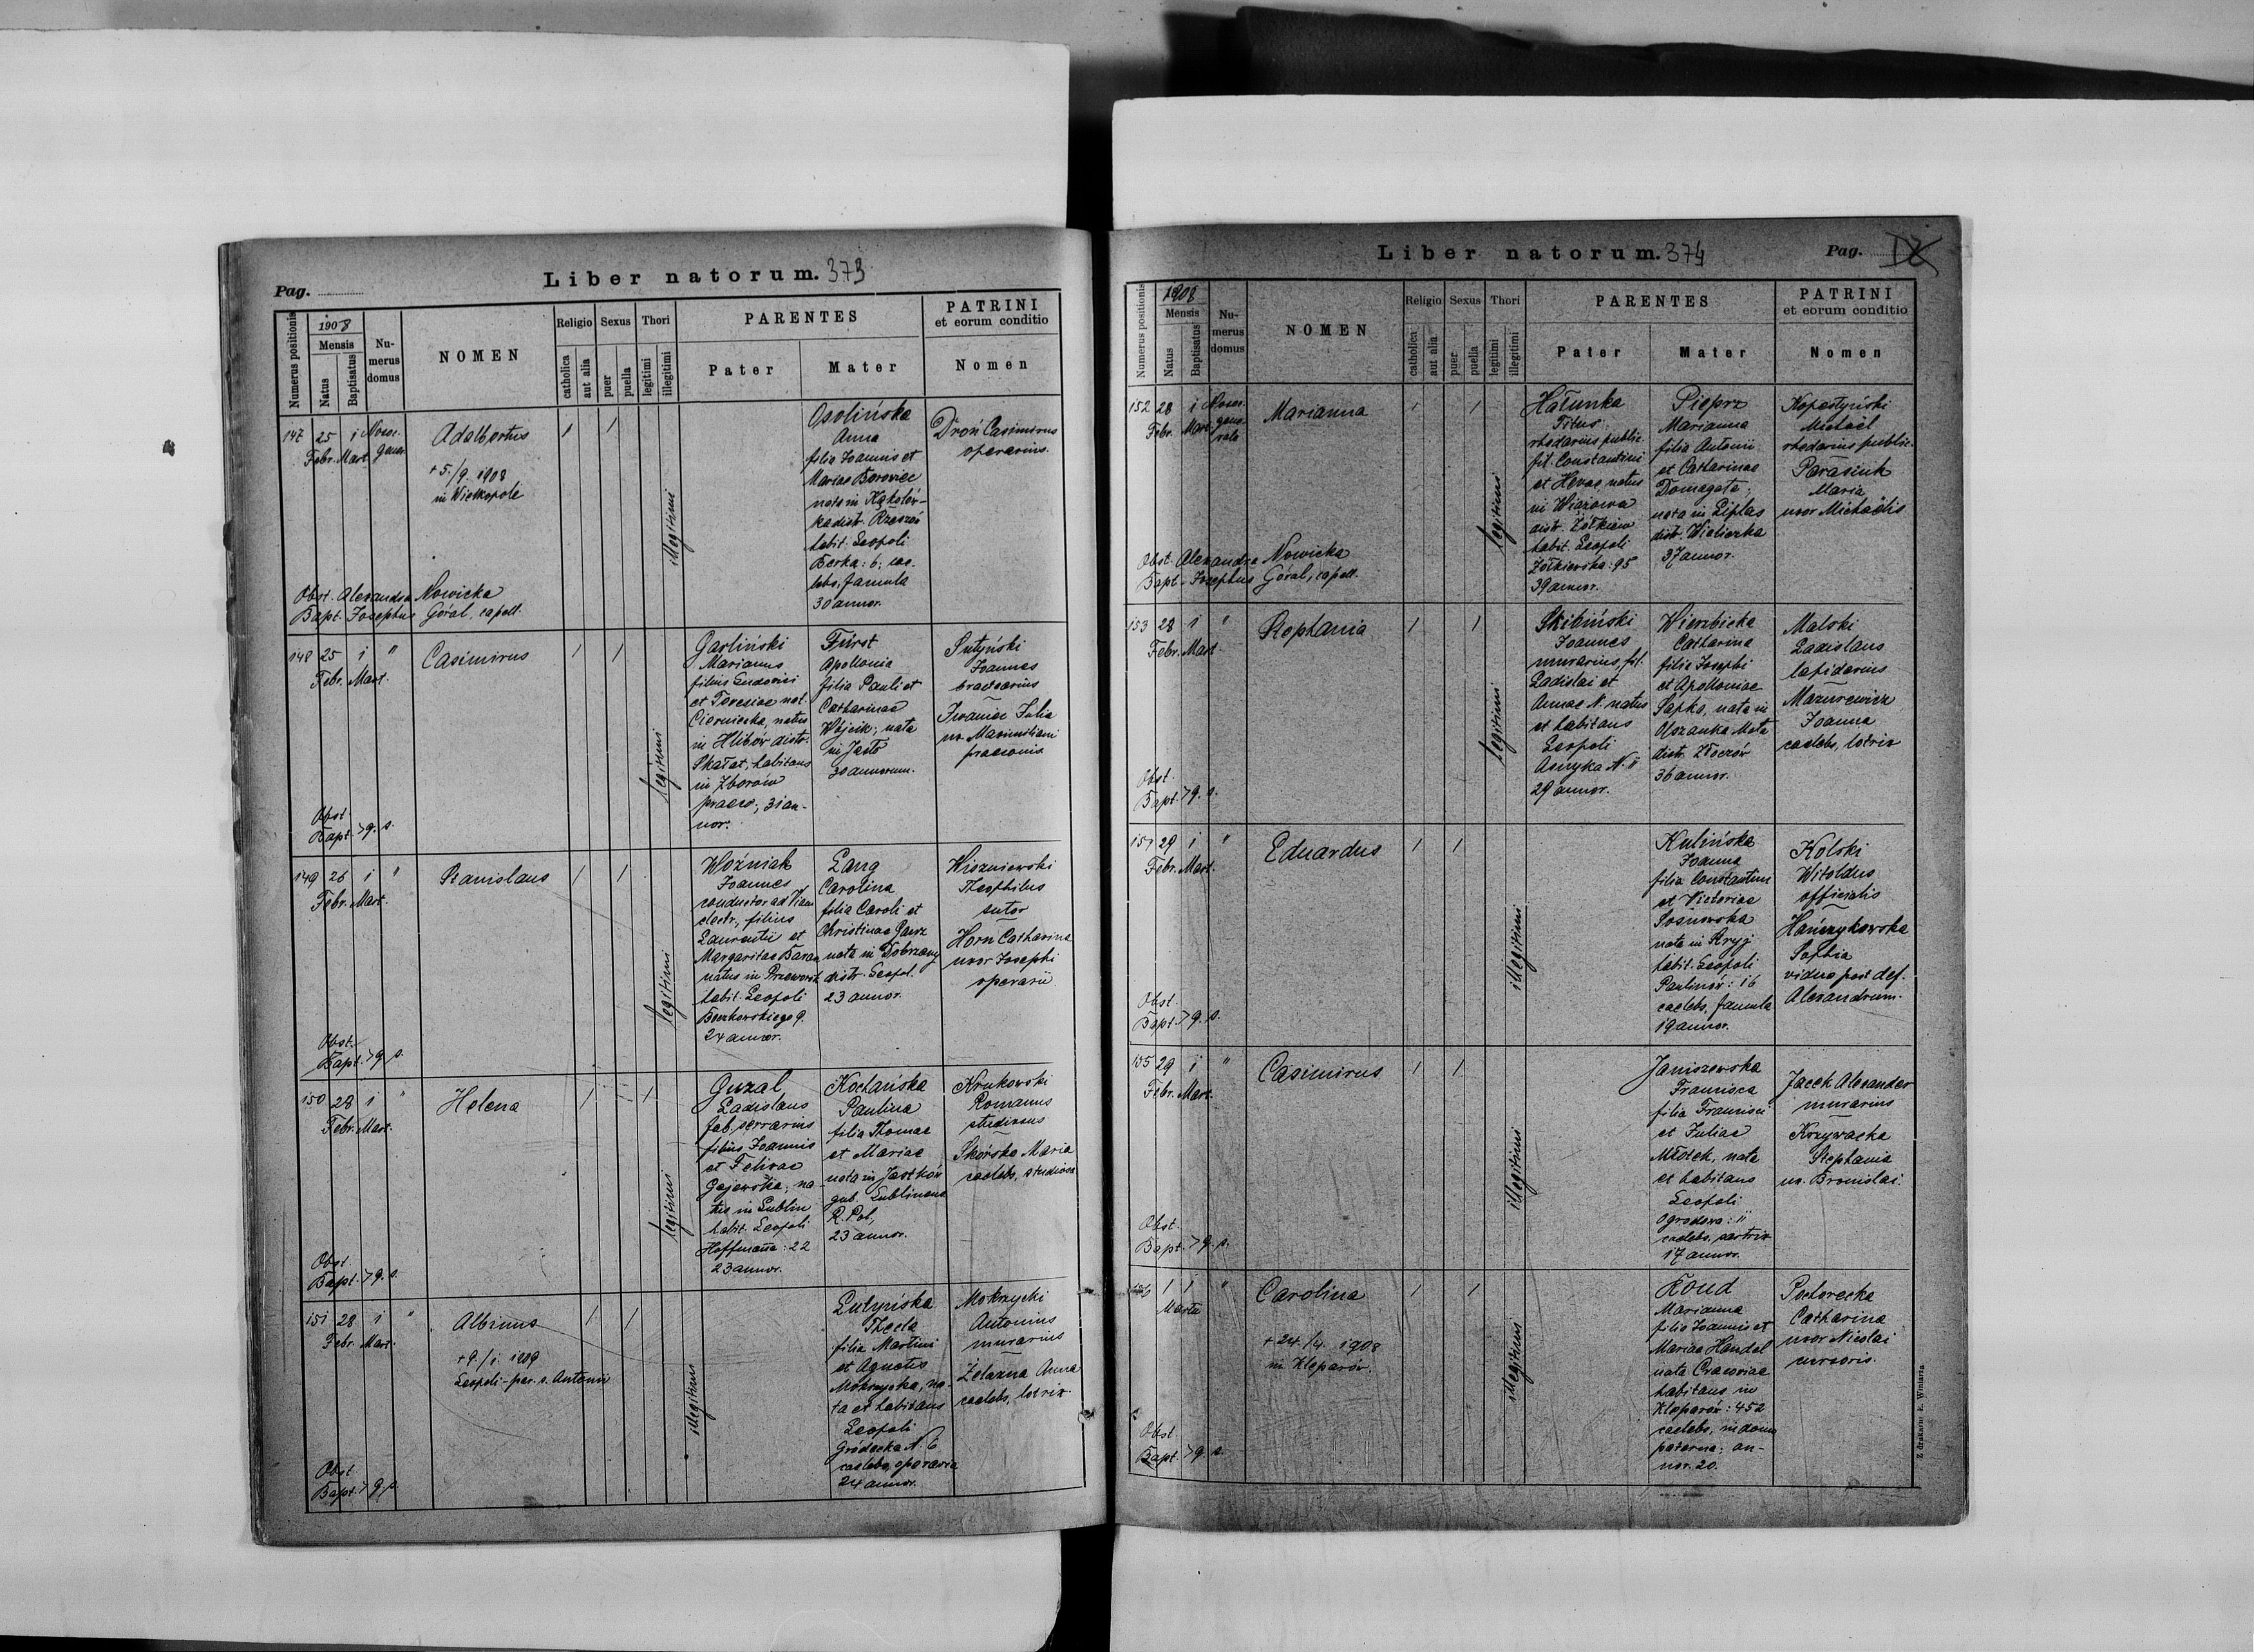 Pag.
Liber natorum. 373
Numerus positionis
1908
Mensis
Natus
Baptisatus
Nu-
merus
domus
NOMEN
Religio
catholica
aut alia
Sexus
puer
puella
Thori
legitimi
illegitimi
PARENTES
Pater
Mater
PATRINI
et eorum conditio
Nomen
147 25 1 Nosoc.
Febr. Mart. gener.
Adalbertus
+5./9. 1908
in Wielkopole
illegitimi
Osolińska
Anna
filia Joannis et
Mariae Borowiec
nata in Kąkolów-
ka distr. Rzeszów
habit. Leopoli
Berka: 6; cae-
lebs, famula
30 annor.
Droń Casimirus
operarius.
Obst. Alexandra Nowicka
Bapt. Josephus Góral, capell.
148 25 1 "
Febr. Mart.
Casimirus
legitimi
Garliński
Marianus
filius Ludovici
et Teresiae nat.
Cierniecka, natus
in Hlibów distr.
Skałat, habitans
in Zborów
praeco; 31 an-
nor.
Fürst
Apollonia
filia Pauli et
Catharinae
Wójcik; nata
in Jasło
30 annorum.
Sutyński
Joannes
braxearius
Iwaniec Julia
ux. Maximiliani
praeconis
Obst.
Bapt. > q. s.
149 26 1 "
Febr. Mart.
Stanislaus
legitimi
Woźniak
Joannes
conductor ad viam
electr., filius
Laurentii et
Margaritae Baran
natus in Przeworsk
habit. Leopoli
Bonkowskiego 9.
24 annor.
Lang
Carolina
filia Caroli et
Christinae Ganz
nata in Dobrzany
distr. Leopol.
23 annor.
Wiszniewski
Theophilus
sutor
Horn Catharina
uxor Josephi
operarii
Obst.
Bapt. > q. s.
150 28 1 "
Febr. Mart.
Helena
legitimi
Guzal
Ladislaus
fab. serrarius
filius Joannis
et Felixae
Gajewska, na-
tus in Lublin
habit. Leopoli
Hoffmana: 22
23 annor.
Kochańska
Paulina
filia Thomae
et Mariae
nata in Jastków
gub. Lublinens
R. Pol,
23 annor.
Krukowski
Romanus
studiosus
Skórska Maria
caelebs, studiosa
Obst.
Bapt. > q. s.
151 28 1 "
Febr. Mart.
Albinus
+9./1. 1909
Leopoli - par. s. Antonii
illegitimi
Lutyńska
Thecla
filia Martini
et Agnetis
Mokrzycka, na-
ta et habitans
Leopoli
Gródecka N. 6
caelebs, operaria
24 annor.
Mokrzycki
Antonius
murarius
Żelazna Anna
caelebs, lotrix.
Obst.
Bapt. > q. s.
Liber natorum. 374
Pag.
Numerus positionis
1908
Mensis
Natus
Baptisatus
Nu-
merus
domus
NOMEN
Religio
catholica
aut alia
Sexus
puer
puella
Thori
legitimi
illegitimi
PARENTES
Pater
Mater
PATRINI
et eorum conditio
Nomen
152 28 1 Nosoc.
Febr. Mart. gene-
rale
Marianna
legitimi
Hałunka
Titus
rhedarius public.
fil. Constantini
et Hevae, natus
in Wiązowa
distr. Żółkiew
habit. Leopoli
Żółkiewska: 95
39 annor.
Pieprz
Marianna
filia Antonii
et Catharinae
Domagała;
nata in Liplas
distr. Wieliczka
37 annor.
Kopestyński
Michaël
rhedarius public.
Parasiuk
Maria
uxor Michaëlis
Obst. Alexandra Nowicka
Bapt. Josephus Góral, capell.
153 28 1 "
Febr. Mart.
Stephania
legitimi
Skibiński
Joannes
murarius, fil.
Ladislai et
Annae N. natus
et habitans
Leopoli
Asnyka N. 11
29 annor.
Wierzbicka
Catharina
filia Josephi
et Apolloniae
Sapko, nata in
Olszanka Mała
distr. Złoczów
36 annor.
Malski
Ladislaus
lapidarius
Mazurewicz
Joanna
caelebs, lotrix
Obst.
Bapt. > q. s.
154 29 1 "
Febr. Mart.
Eduardus
illegitimi
Kulińska
Joanna
filia Constantini
et Victoriae
Sosnowska
nata in Stryj
habit. Leopoli
Paulinów: 16
caelebs, famula
19 annor.
Kolski
Witoldus
officialis
Hańczykowska
Sophia
vidua post def.
Alexandrum.
Obst.
Bapt. > q. s.
155 29 1 "
Febr. Mart.
Casimirus
illegitimi
Janiszewska
Francisca
filia Francisci
et Juliae
Młotek, nata
et habitans
Leopoli
Ogrodowa: 11
caelebs, sartrix
17 annor.
Jacek Alexander
murarius
Krzywacka
Stephania
ux. Bronislai
Obst.
Bapt. > q. s.
156 1 1 "
Martii
Carolina
+24./4. 1908
in Kleparów.
illegitimi
Roud
Marianna
filia Joannis et
Mariae Handel
nata Cracoviae
habitans in
Kleparów: 452
caelebs, in domo
paterna; an-
nor. 20.
Pochorecka
Catharina
uxor Nicolai
cursoris.
Obst.
Bapt. > q. s.
Z drukarni E. Winiarza